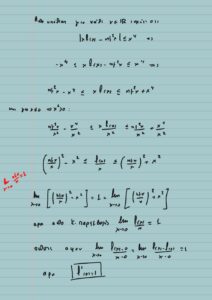 για κάθε x ∈ ℝ ισχύει ότι
|x f(x) - ημ²x| ≤ x⁴ ⇔
-x⁴ ≤ x f(x) - ημ²x ≤ x⁴ ⇔
ημ²x - x⁴ ≤ x f(x) ≤ ημ²x + x⁴
ημ²x/x² - x⁴/x² ≤ x f(x)/x² ≤ ημ²x/x² + x⁴/x²
(ημx/x)² - x² ≤ f(x)/x ≤ (ημx/x)² + x²
lim x→0 ημx/x = 1
lim x→0 [(ημx/x)² - x²] = 1 = lim x→0 [(ημx/x)² + x²]
αρα από Κ. παρεμβολής lim x→0 f(x)/x = 1
lim x→0 f(x)-0/x-0 = lim x→0 f(x)-f(0)/x-0 = 1
αρα f'(0)=1